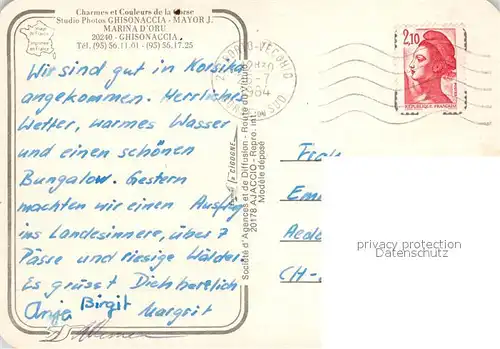 Charmes et Couleurs de la Corse
Studio Photos GHISONACCIA - MAYOR J.
MARINA D'ORU
20240 - GHISONACCIA
Tél. (95) 56.11.01 - (95) 56.17.25
Wir sind gut in Korsika
angekommen. Herrliches
Wetter, warmes Wasser
und einen schönen
Bungalow. Gestern
machten wir einen Ausflug
ins Landesinnere, über 7
Pässe und riesige Wälder.
Es grüsst Dich herzlich
Anja Birgit Margrit
Société d'Agences et de Diffusion - Route du Vittulo
20178 AJACCIO - Repro. int.
Modèle déposé
2,10
RÉPUBLIQUE FRANÇAISE
1984
CH-
permission required
oldthing.de